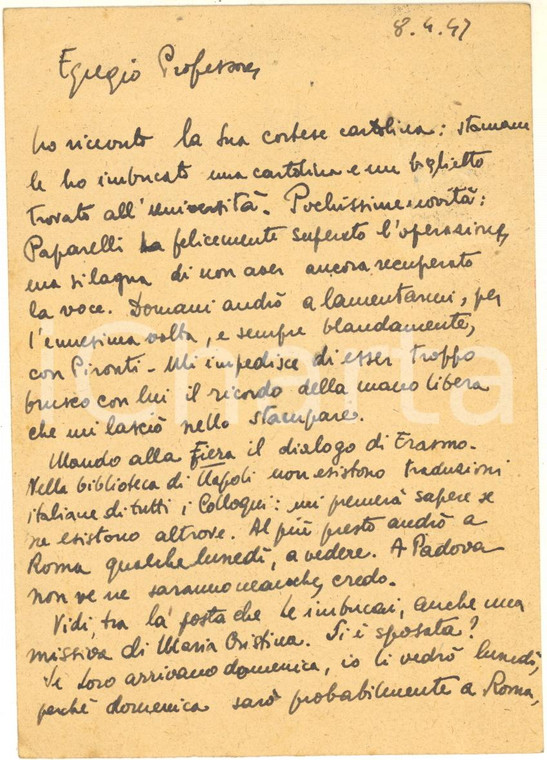 8.4.47
Egregio Professore,
ho ricevuto la Sua cortese cartolina: stamani
le ho imbucato una cartolina e un biglietto
trovato all'università. Pochissime novità:
Paparelli ha felicemente superato l'operazione,
ma si lagna di non aver ancora recuperato
la voce. Domani andrò a lamentarmi, per
l'ennesima volta, e sempre blandamente,
con Pironti - Mi impedisce di esser troppo
brusco con lui il ricordo della mano libera
che mi lasciò nello stampare.
Mando alla Fiera il dialogo di Erasmo.
Nella biblioteca di Napoli non esistono traduzioni
italiane di tutti i Colloqui: mi premerà sapere se
ne esistono altrove. Al più presto andrò a
Roma qualche lunedì, a vedere. A Padova
non ve ne saranno neanche, credo.
Vidi, tra la posta che Le imbucai, anche una
missiva di Maria Cristina. Si è sposata?
Se Loro arrivano domenica, io li vedrò lunedì,
perché domenica sarò probabilmente a Roma,
iCharta